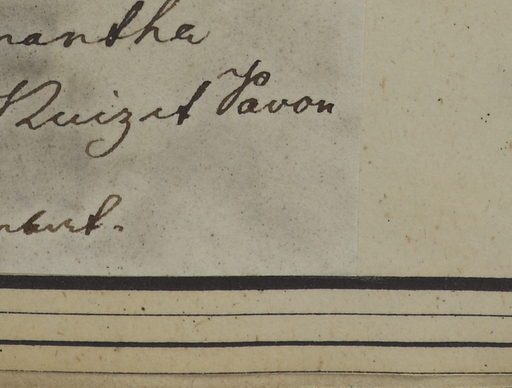 mantha
Ruiz et Pavon